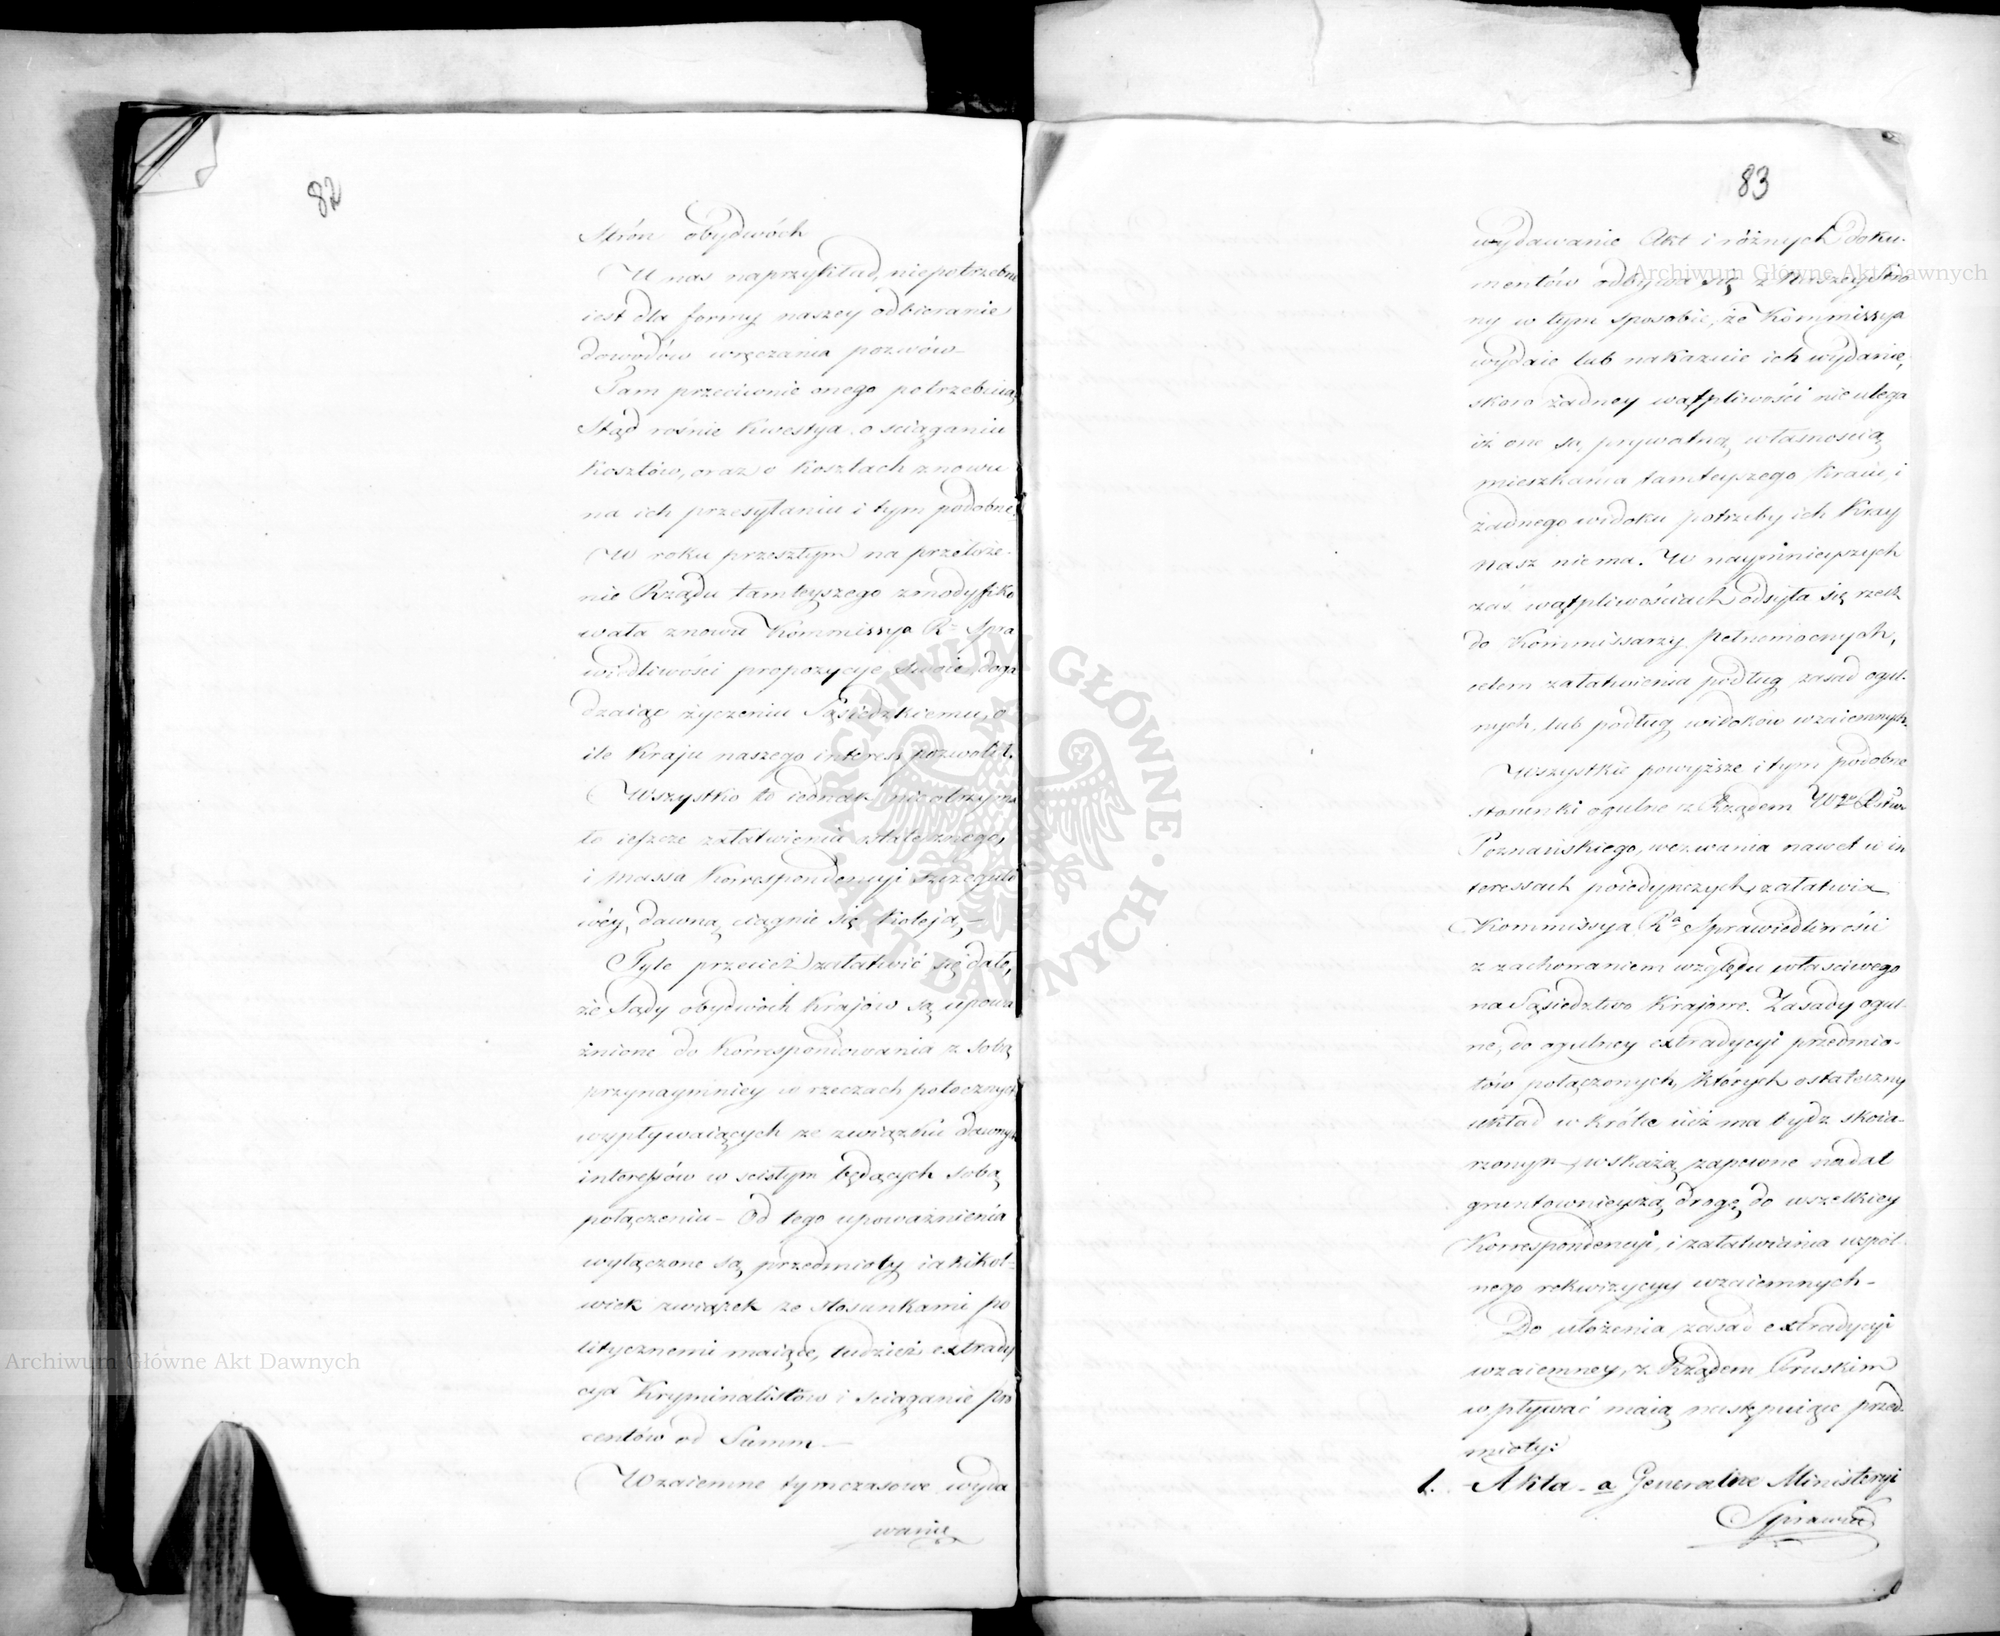 82
Strón obydwóch
W nas naprzykład, niepotrzebne
iest dla formy naszey odbieranie
dowodów wręczania pozwów –
Tam przeciwnie onego potrzebuią
Stąd rośnie kwestya o sciąganiu
kosztów, oraz o kosztach znowu
na ich przesyłaniu i tym podobne.
W roku przeszłym na przełoże-
nie Rządu tamteyszego zmodyfiko
wała znowu Kommissya R. Spra
wiedliwości propozycye swoie, doga
dzaiąc życzeniu Sąsiedzkiemu, o
ile Kraju naszego interess pozwolił.
Wszystko to iednak nie otrzyma
ło ieszcze załatwienia ostatecznego,
i massa Korrespondencyi szczegóło
wéy, dawną ciągnie się koleją –
Tyle przecież załatwić się dało,
że Sądy obydwóch Krajów są upowa
żnione do Korrespondowania z sobą
przynaymniey w rzeczach potocznych
wypływaiących ze związku dawnych
interessów w scisłym będących sobą
połączeniu – Od tego upoważnienia
wyłączone są przedmioty iakikol-
wiek związek ze stosunkami po
litycznemi maiące, tudzież extrady
cya Kryminalistów i sciąganie pro
centów od Summ –
Wzaiemne tymczasowe wyda
wanie
83
wydawanie Akt i różnych doku-
mentów odbywa się z Naszey Stro
ny w tym sposobie, że Kommissya
wydaie lub nakazuie ich wydanie,
skoro żadney wątpliwości nie ulega
iż one są prywatną własnością
mieszkańca tamteyszego Kraiu, i
żadnego widoku potrzeby ich Kray
nasz niema. W naymnieyszych
zaś wątpliwościach odsyła się rzecz
do Kommissarzy pełnomocnych,
celem załatwienia podług zasad ogul-
nych, lub podług widoków wzaiemnych.
Wszystkie powyższe i tym podobne
stosunki ogulne z Rządem Wgo Xstwa
Poznańskiego, wezwania nawet w in
teressach poiedynczych, załatwia
Kommissya Ra Sprawiedliwości
z zachowaniem względu właściwego
na Sąsiedztwo Krajowe. Zasady ogul-
ne, do ogulney extradycyi przedmio-
tów połączonych, których ostateczny
układ w krótce iuż ma bydź skoia-
rzonym – wskażą zapewne nadal
gruntownieyszą drogę do wszelkiey
Korrespondencyi, i załatwiania wspól-
nego rekwizycyy wzaiemnych –
Do ułożenia zasad extradycyi
wzaiemney, z Rządem Pruskim
wpływać maią następuiące przed-
mioty:
1. Akta – a Generalne Ministeryi
Sprawied
Archiwum Główne Akt Dawnych
Archiwum Główne Akt Dawnych
ARCHIWUM GŁÓWNE AKT DAWNYCH